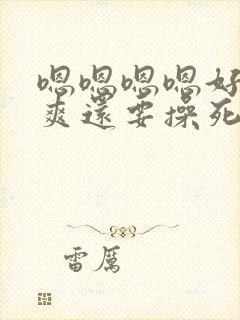 嗯嗯嗯嗯好
爽还要操死
雷厉